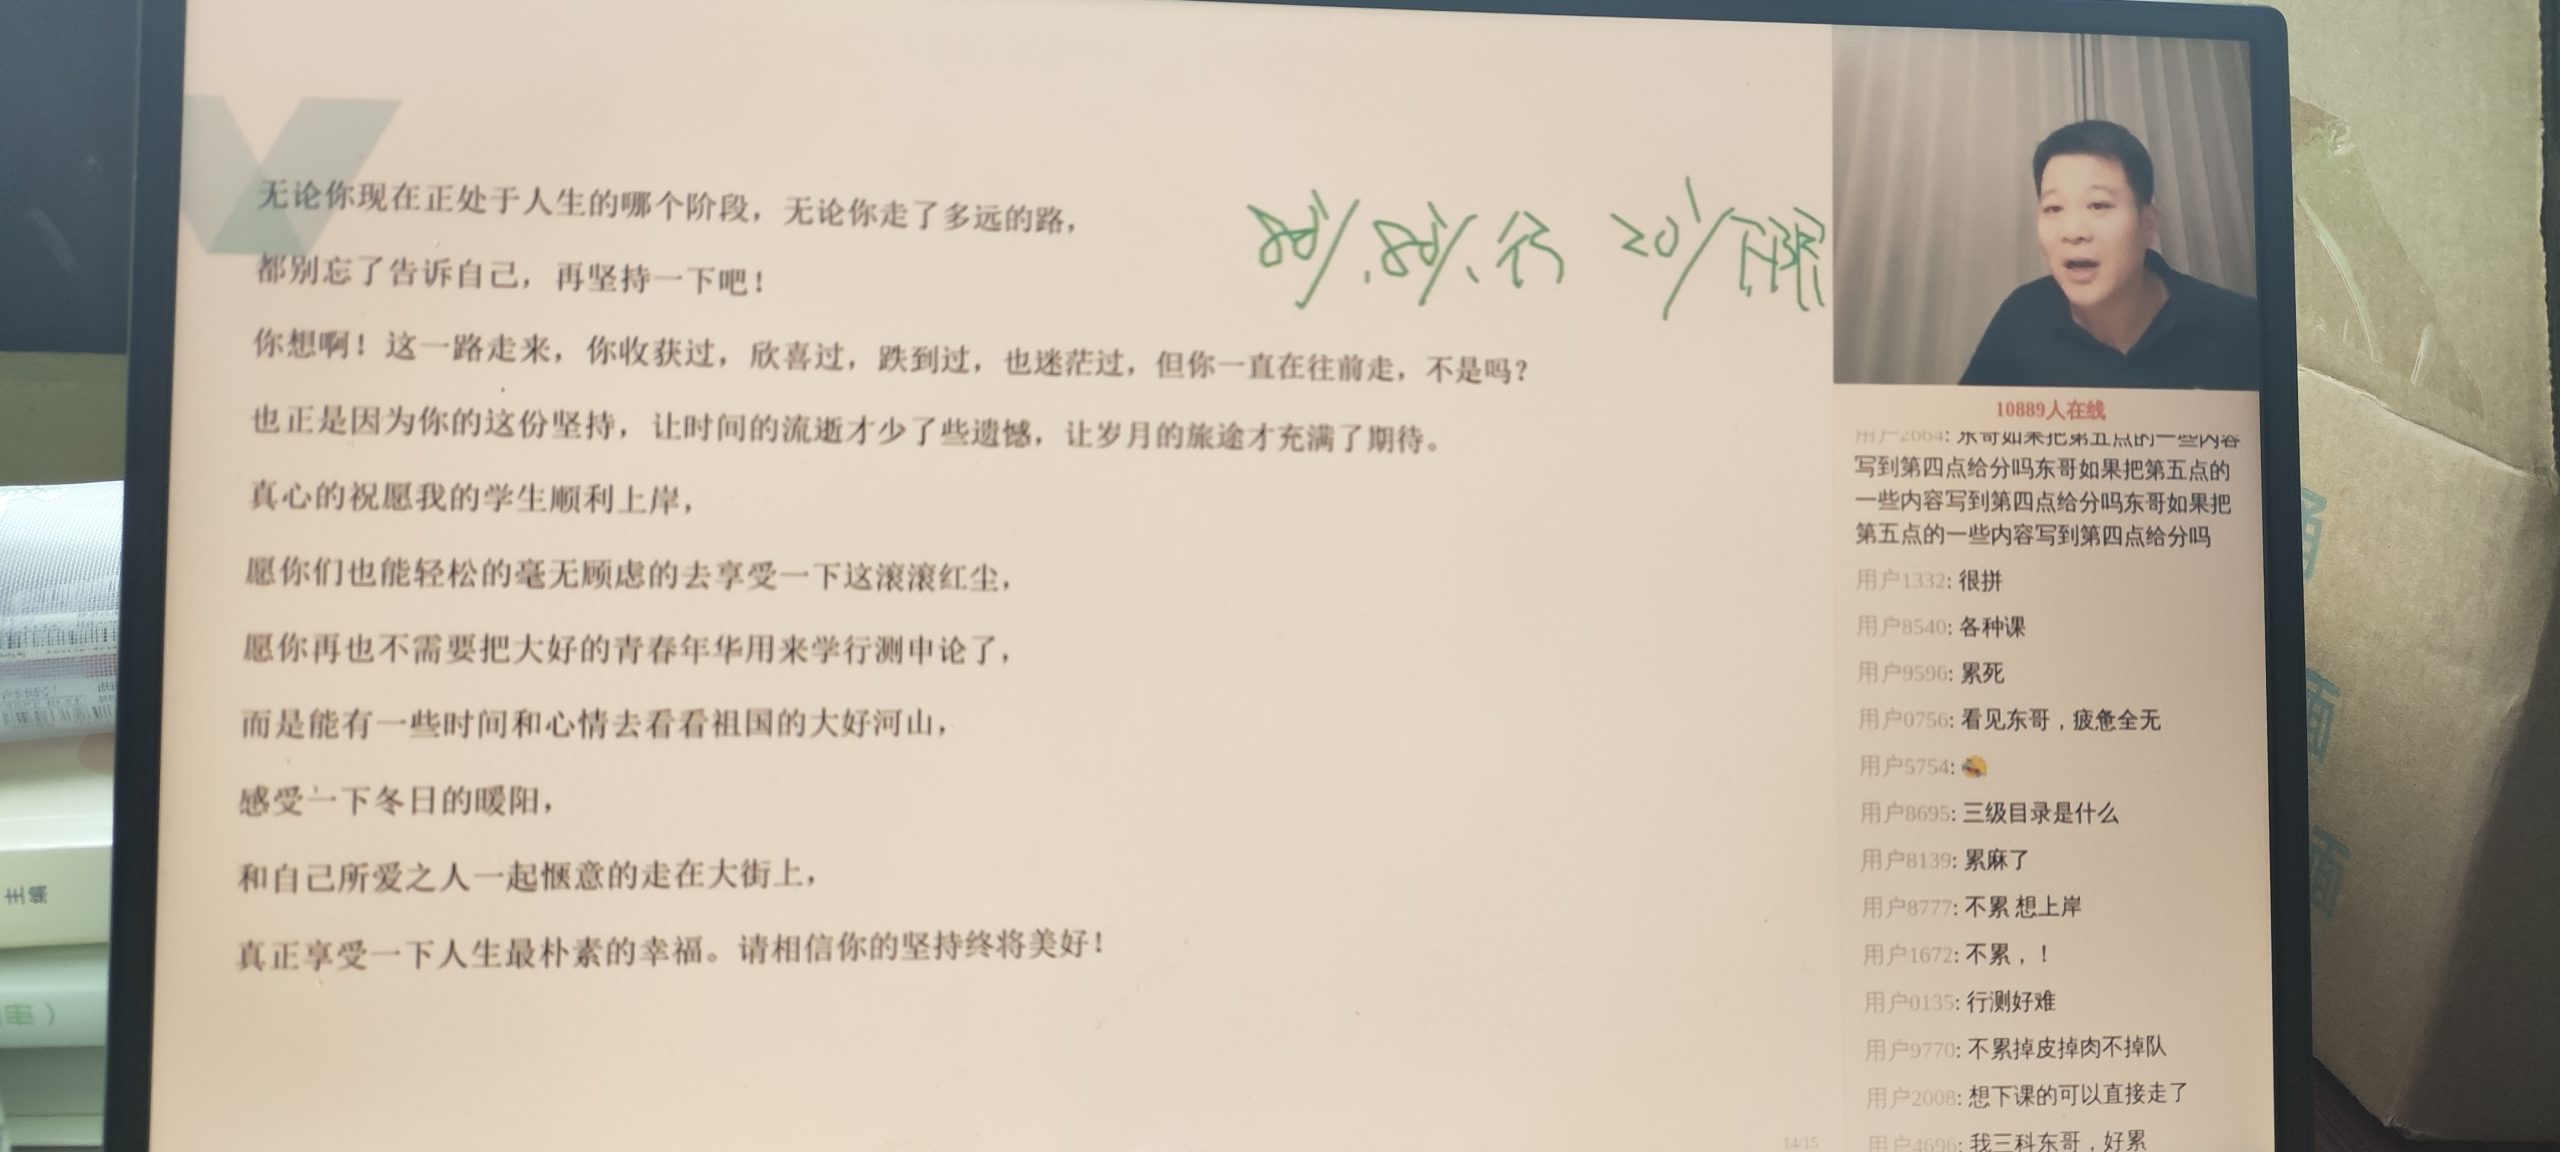 无论你现在正处于人生的哪个阶段，无论你走了多远的路，
都别忘了告诉自己，再坚持一下吧！
你想啊！这一路走来，你收获过，欣喜过，跌到过，也迷茫过，但你一直在往前走，不是吗？
也正是因为你的这份坚持，让时间的流逝才少了些遗憾，让岁月的旅途才充满了期待。
真心的祝愿我的学生顺利上岸，
愿你们也能轻松的毫无顾虑的去享受一下这滚滚红尘，
愿你再也不需要把大好的青春年华用来学行测申论了，
而是能有一些时间和心情去看看祖国的大好河山，
感受一下冬日的暖阳，
和自己所爱之人一起惬意的走在大街上，
真正享受一下人生最朴素的幸福。请相信你的坚持终将美好！
行 20
14/15
10889人在线
用户2664: 东哥如果把第五点的一些内容
写到第四点给分吗东哥如果把第五点的
一些内容写到第四点给分吗东哥如果把
第五点的一些内容写到第四点给分吗
用户1332: 很拼
用户8540: 各种课
用户9596: 累死
用户0756: 看见东哥，疲惫全无
用户5754:
用户8695: 三级目录是什么
用户8139: 累麻了
用户8777: 不累 想上岸
用户1672: 不累，！
用户0135: 行测好难
用户9770: 不累掉皮掉肉不掉队
用户2008: 想下课的可以直接走了
用户4696: 我三科东哥，好累
主编